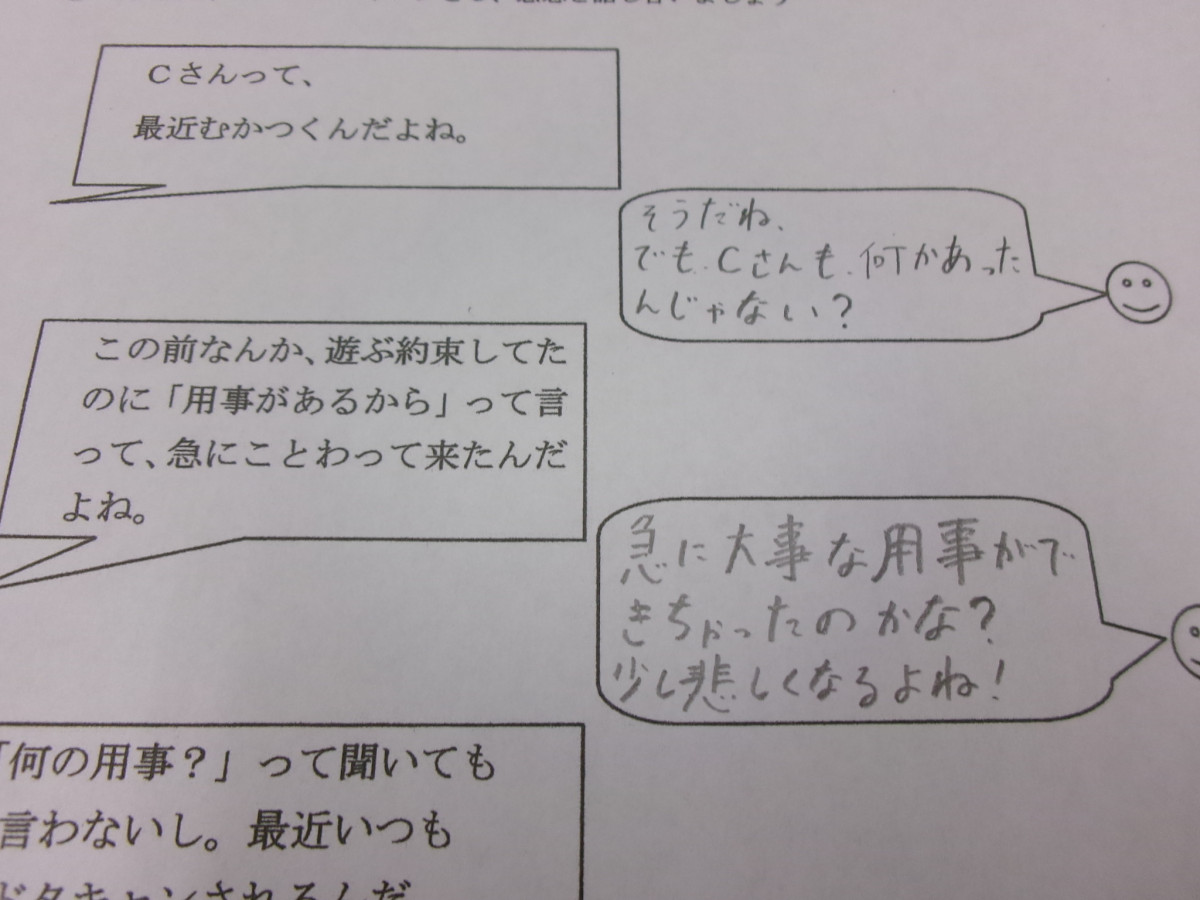 Cさんって、
最近むかつくんだよね。
そうだね、
でも、Cさんも、何かあった
んじゃない？
この前なんか、遊ぶ約束してた
のに「用事があるから」って言
って、急にことわって来たんだ
よね。
急に大事な用事がで
きちゃったのかな？
少し悲しくなるよね！
「何の用事？」って聞いても
言わないし。最近いつも
ドタキャンされるんだ